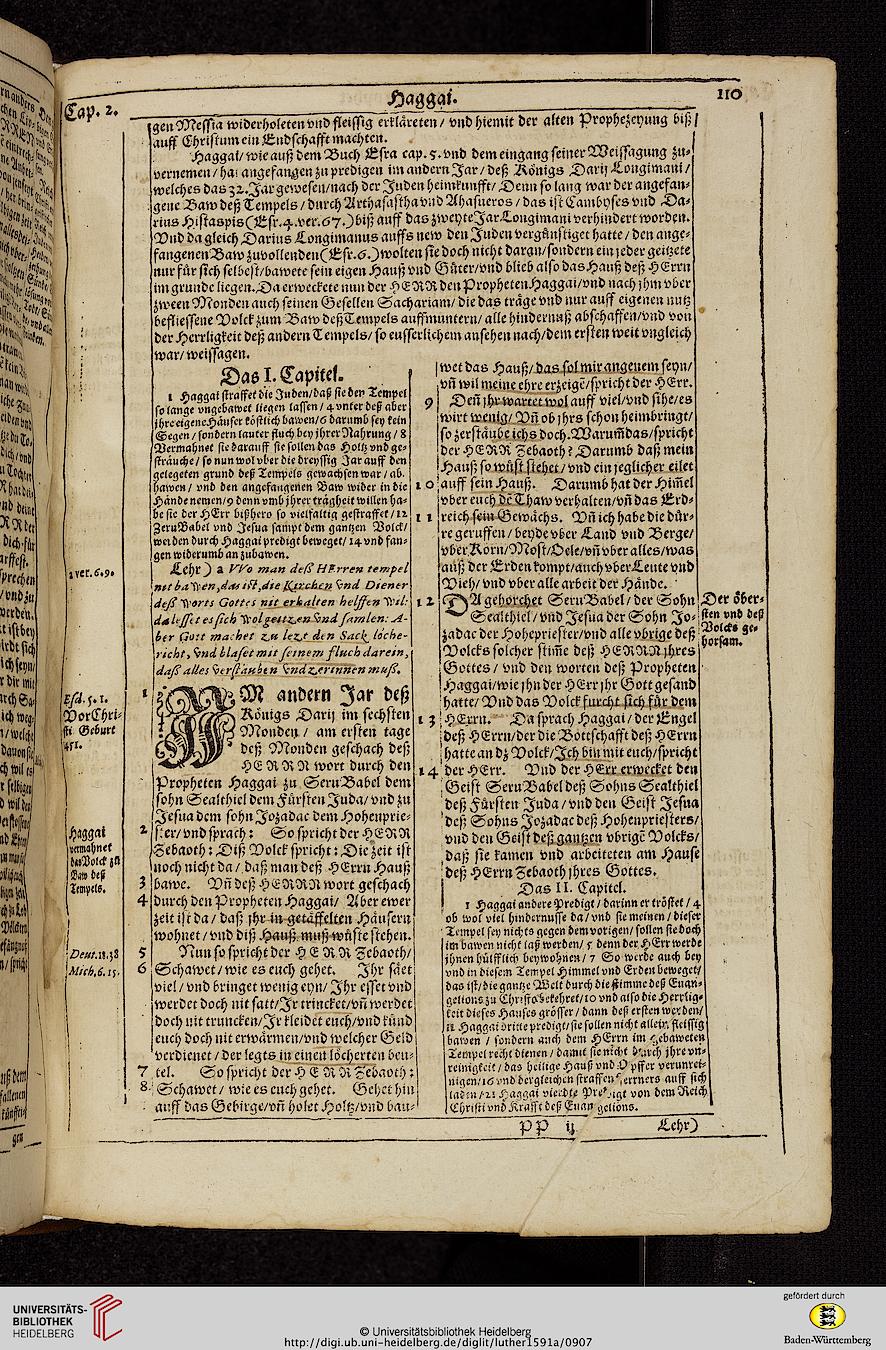 Cap. 2.
Haggai.
110
gen Messia widerholeten vnd fleissig erkläreten / vnd hiemit der alten Prophezeyung biß
auff Christum ein Endschafft machten.
Haggai / wie auß dem Buch Esra cap. 5. vnd dem eingang seiner Weissagung zu-
vernemen / hat angefangen zu predigen im andern Jar / deß Königs Darij Longimani /
welches das 32. Jar gewesen / nach der Juden heimkunfft / Denn so lang war der angefan-
gene Baw deß Tempels / durch Arthasastha vnd Ahasueros / das ist Cambyses vnd Da-
rius Histaspis (Esr. 4. ver. 67.) biß auff das zweyte Jar Longimani verhindert worden.
Vnd da gleich Darius Longimanus auffs new den Juden vergünstiget hatte / den ange-
fangenen Baw zuvollenden (Esr. 6.) wolten sie doch nicht daran / sondern ein jeder geitzete
nur für sich selbest / bawete sein eigen Hauß vnd Güter / vnd blieb also das Hauß deß HErrn
im grunde liegen. Da erweckete nun der HERR den Propheten Haggai / vnd nach jhm vber
zween Monden auch seinen Gesellen Sachariam / die das träge vnd nur auff eigenen nutz
beflissene Volck zum Baw deß Tempels auffmuntern / alle hindernuß abschaffen / vnd von
der Herrligkeit deß andern Tempels / so eusserlichem ansehen nach / dem ersten weit vngleich
war / weissagen.
Das I. Capitel.
1 Haggai straffet die Juden / daß sie den Tempel
so lange vngebawet liegen lassen / 4 vnter deß aber
jhre eigene Häuser köstlich bawen / 6 darumb sey kein
Segen / sondern lauter fluch bey jhrer Nahrung / 8
Vermahnet sie darauff sie sollen das Holtz vnd ge-
sträuche / so nun wol vber die dreyssig Jar auff den
gelegeten grund deß Tempels gewachsen war / ab-
hawen / vnd den angefangenen Baw wider in die
Hände nemen / 9 denn vmb jhrer trägheit willen ha-
be sie der HErr bißhero so vielfaltig gestraffet / 12
ZeruBabel vnd Jesua sampt dem gantzen Volck /
werden durch Haggai predigt beweget / 14 vnd fan-
gen widerumb an zubawen.
1 ver. 6. 9.
Lehr ) a VVo man deß HErren tempel
nit bawen, das ist, die Kirchen vnd Diener
deß worts Gottes nit erhalten helffen wil:
da lesset es sich wol geitzen vnd samlen: A-
ber Gott machet zu lezt den Sack löche-
richt, vnd blaset mit seinem fluch darein,
daß alles verstäuben vnd zerinnen muß.
Esd. 5. 1.
Vor Christi
Geburt
451.
1 IM andern Jar deß
Königs Darij im sechsten
Monden / am ersten tage
deß Monden geschach deß
HERRN wort durch den
Propheten Haggai zu SeruBabel dem
sohn Sealthiel dem Fürsten Juda / vnd zu
Jesua dem sohn Jozadac dem Hohenprie-
Haggai
vermahnet
das Volck zū
Baw deß
Tempels.
2 ster / vnd sprach: So spricht der HERR
Zebaoth: Diß Volck spricht: Die zeit ist
noch nicht da / daß man deß HErrn Hauß
3 bawe. Vñ deß HERRN wort geschach
4 durch den Propheten Haggai / Aber ewer
zeit ist da / daß jhr in getäffelten Häusern
wohnet / vnd diß Hauß muß wüste stehen.
Deut. 28. 38
Mich. 6. 15.
5 Nun so spricht der HERR Zebaoth /
6 Schawet / wie es euch gehet. Jhr säet
viel / vnd bringet wenig eyn / Jhr esset vnd
werdet doch nit satt / Jr trincket / vñ werdet
doch nit truncken / Jr kleidet euch / vnd künd
euch doch nit erwärmen / vnd welcher Geld
verdienet / der legts in einen löcherten beu-
7 tel. So spricht der HERR Zebaoth:
8 Schawet / wie es euch gehet. Gehet hin
auff das Gebirge / vñ holet Holtz / vnd bau-
wet das Hauß / das sol mir angenem seyn /
vñ wil meine ehre erzeigē / spricht der HErr.
9 Deñ jhr wartet wol auff viel / vnd sihe / es
wirt wenig / Vñ ob jhrs schon heimbringt /
so zerstäube ichs doch. Warum̃ das / spricht
der HERR Zebaoth? Darumb daß mein
Hauß so wüst stehet / vnd ein jeglicher eilet
10 auff sein Hauß. Darumb hat der Him̃el
vber euch dē Thaw verhalten / vñ das Erd-
11 reich sein Gewächs. Vñ ich habe die dür-
re geruffen / beyde vber Land vnd Berge /
vber Korn / Most / Oele / vñ vber alles / was
auß der Erden kompt / auch vber Leute vnd
Vieh / vnd vber alle arbeit der Hände.
12 DA gehorchet SeruBabel / der Sohn
Sealthiel / vnd Jesua der Sohn Jo-
zadac der Hohepriester / vnd alle vbrige deß
Volcks solcher stim̃e deß HERRN jhres
Gottes / vnd den worten deß Propheten
Haggai / wie jhn der HErr jhr Gott gesand
hatte / Vnd das Volck furcht sich für dem
13 HErrn. Da sprach Haggai / der Engel
deß HErrn / der die Bottschafft deß HErrn
hatte an dz Volck / Ich bin mit euch / spricht
14 der HErr. Vnd der HErr erwecket den
Geist SeruBabel deß Sohns Sealthiel
deß Fürsten Juda / vnd den Geist Jesua
deß Sohns Jozadac deß Hohenpriesters /
vnd den Geist deß gantzen vbrigē Volcks /
daß sie kamen vnd arbeiteten am Hause
deß HErrn Zebaoth jhres Gottes.
Der öber-
sten vnd deß
Volcks ge-
horsam.
Das II. Capitel.
1 Haggai andere Predigt / darinn er tröstet / 4
ob wol viel hindernusse da / vnd sie meinen / dieser
Tempel sey nichts gegen dem vorigen / sollen sie doch
im bawen nicht laß werden / 5 denn der HErr werde
jhnen hülfflich beywohnen / 7 So werde auch bey
vnd in diesem Tempel Himmel vnd Erden beweget /
das ist / die gantze Welt durch die stimme deß Euan-
gelions zu Christo bekehret / 10 vnd also die Herrlig-
keit dieses Hauses grösser / dann deß ersten werden /
11 Haggai dritte predigt / sie sollen nicht allein fleissig
bawen / sondern auch dem HErrn im gebaweten
Tempel recht dienen / damit sie nicht durch jhre vn-
reinigkeit / das heilige Hauß vnd Opffer verunrei-
nigen / 16 vnd dergleichen straffen ferrners auff sich
laden / 21 Haggai vierdte Predigt von dem Reich
Christi vnd Krafft deß Euangelions.
PP ij
Lehr)
gen
UNIVERSITÄTS-
BIBLIOTHEK
HEIDELBERG
© Universitätsbibliothek Heidelberg
http://digi.ub.uni-heidelberg.de/diglit/luther1591a/0907
gefördert durch
Baden-Württemberg